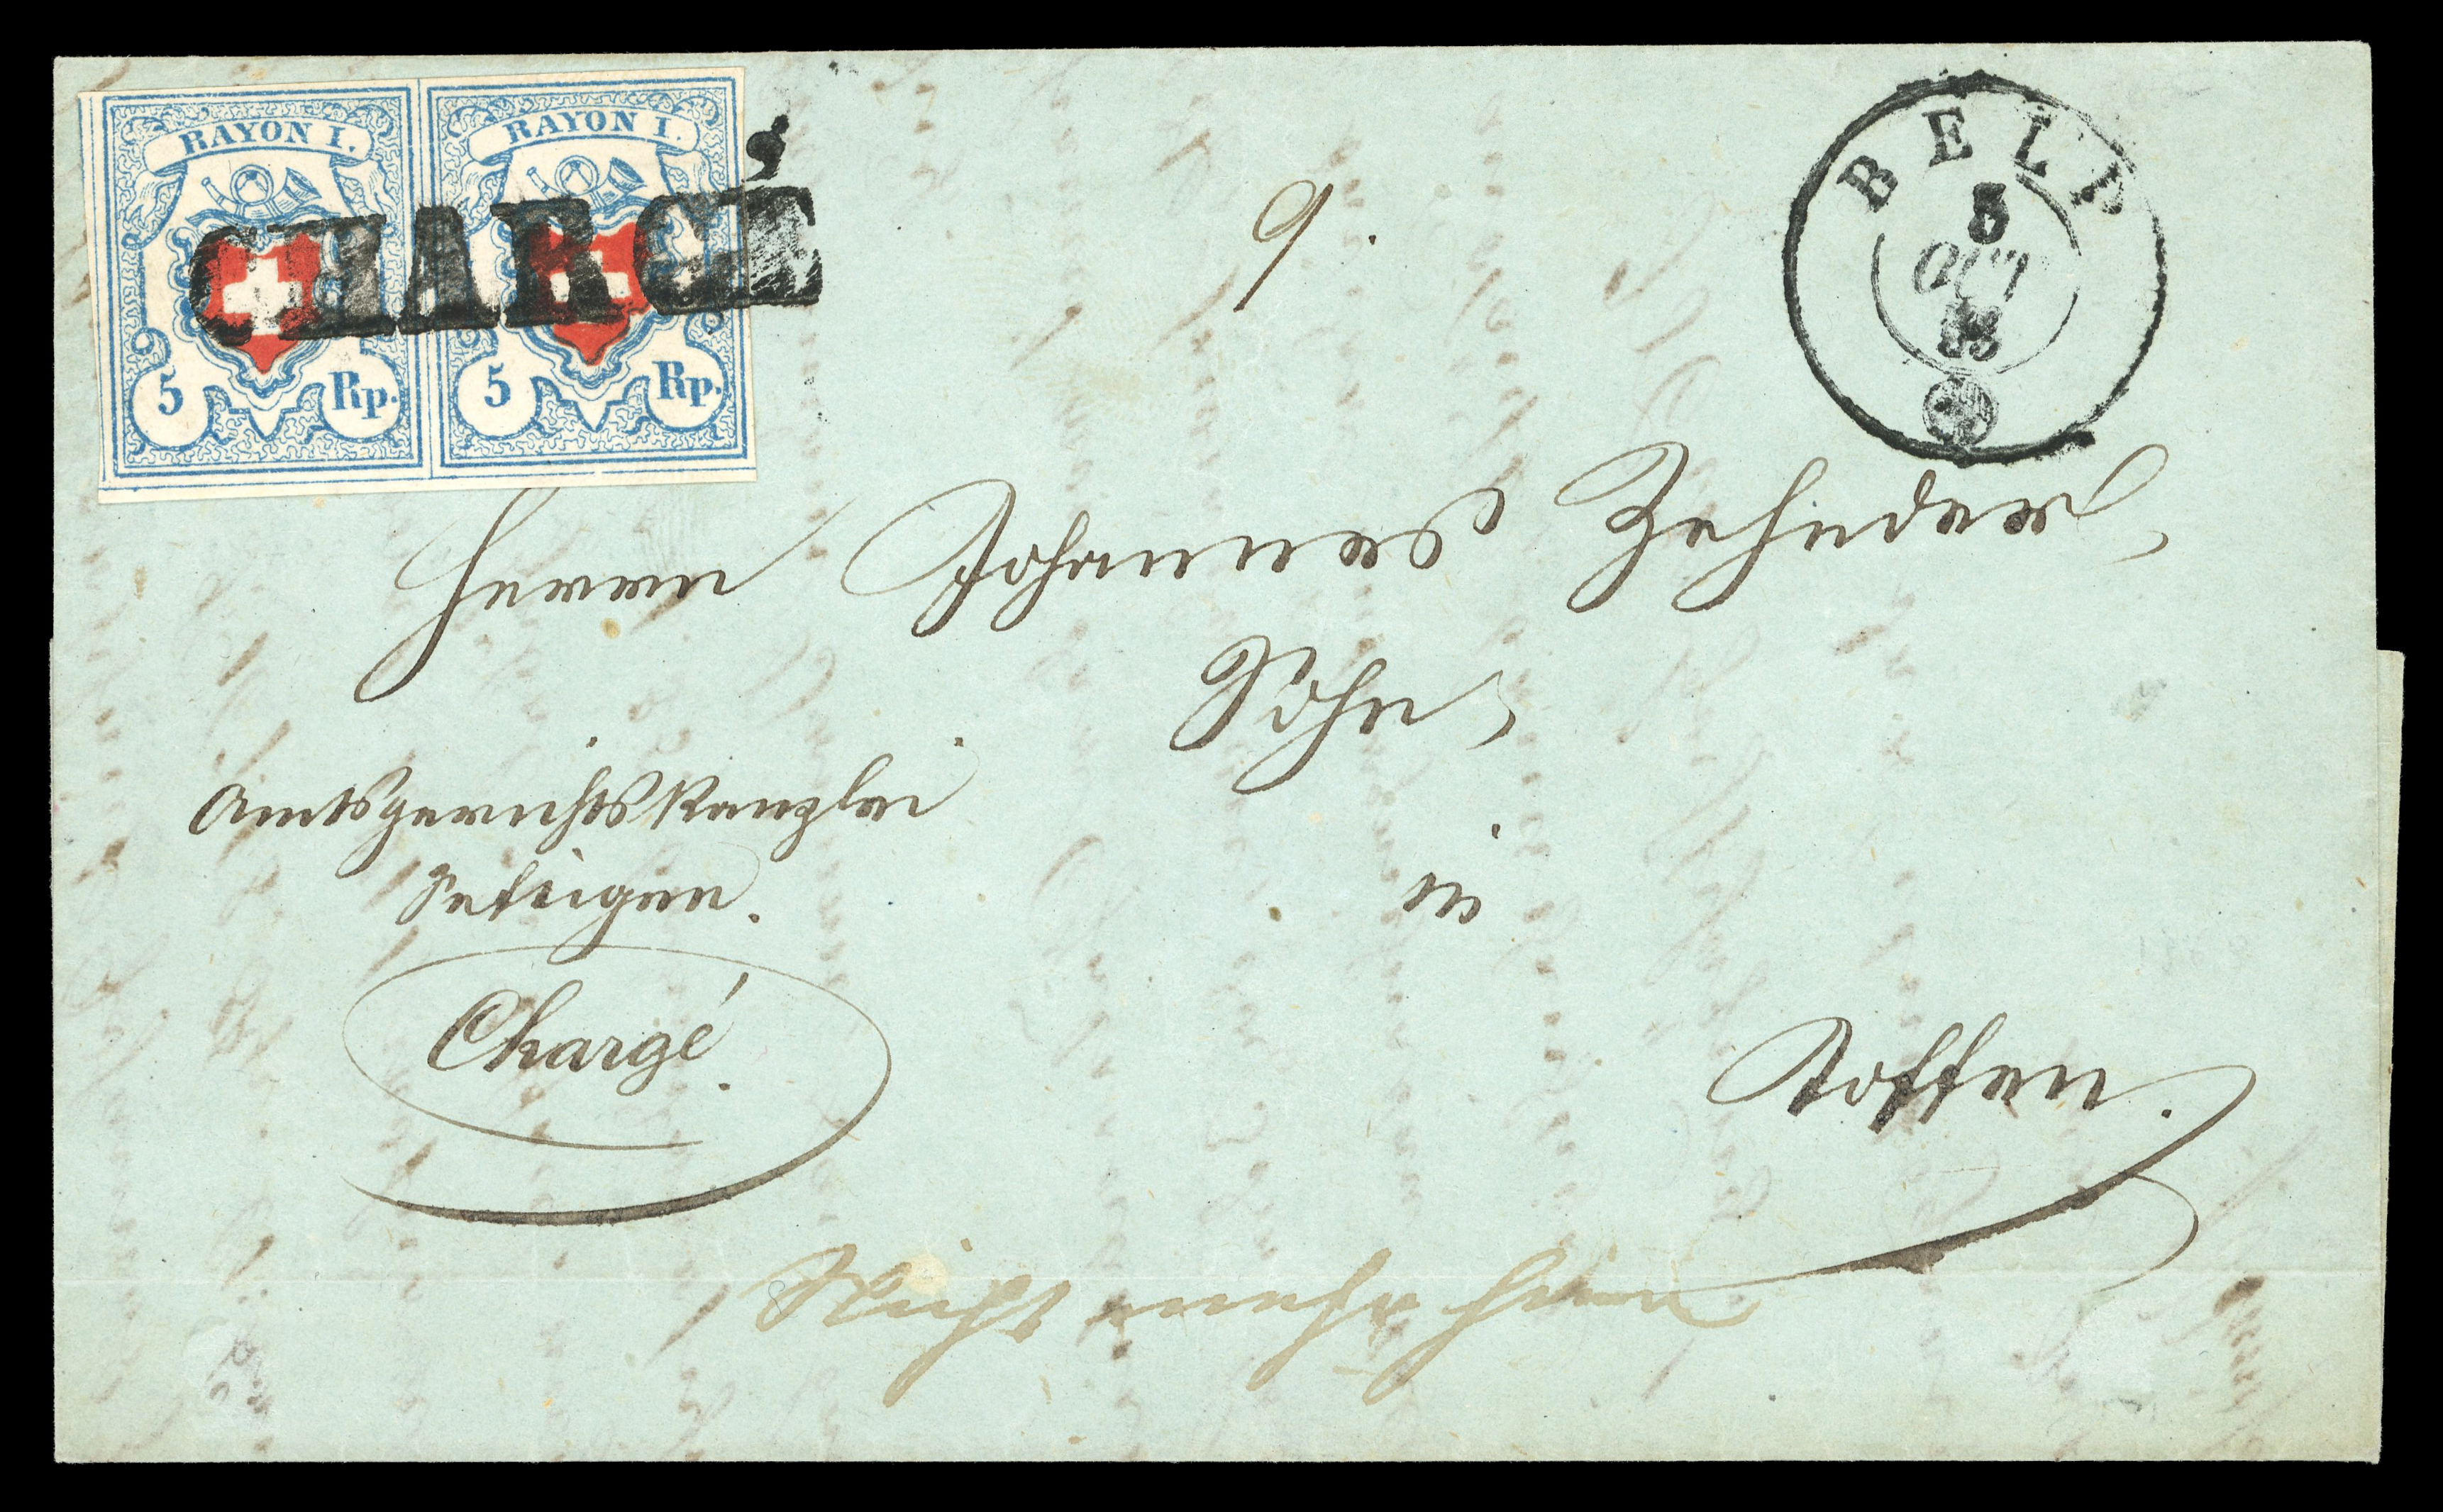 RAYON I. RAYON I.
CHARGÉ
5 Rp. 5 Rp.
9.
BELP
OCT
53
Herrn Johannes Zehnder,
Sohn,
Amtsgerichtskanzlei
Seftigen.
in
Chargé.
Toffen.